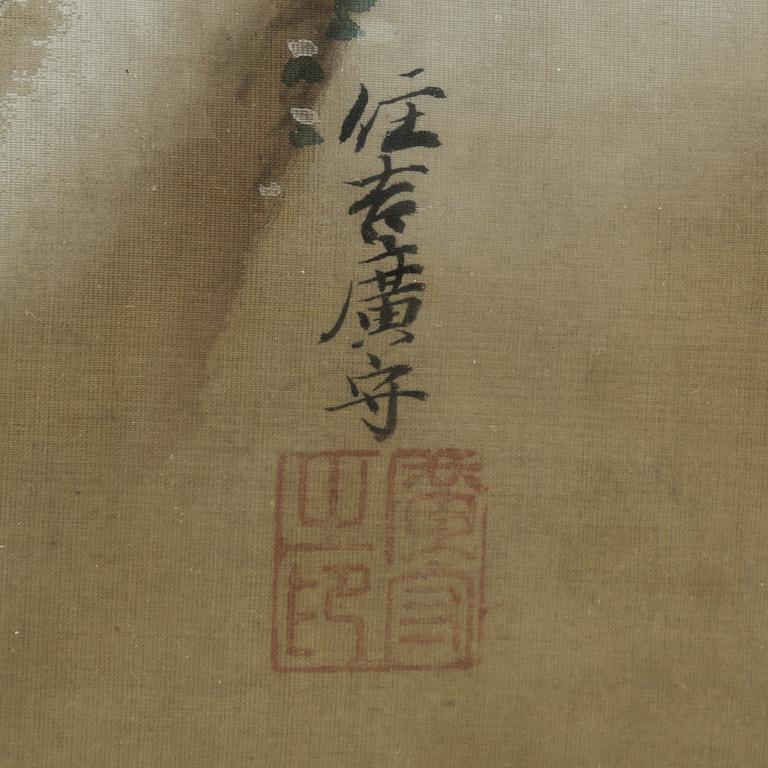 住吉廣守
廣守
之印